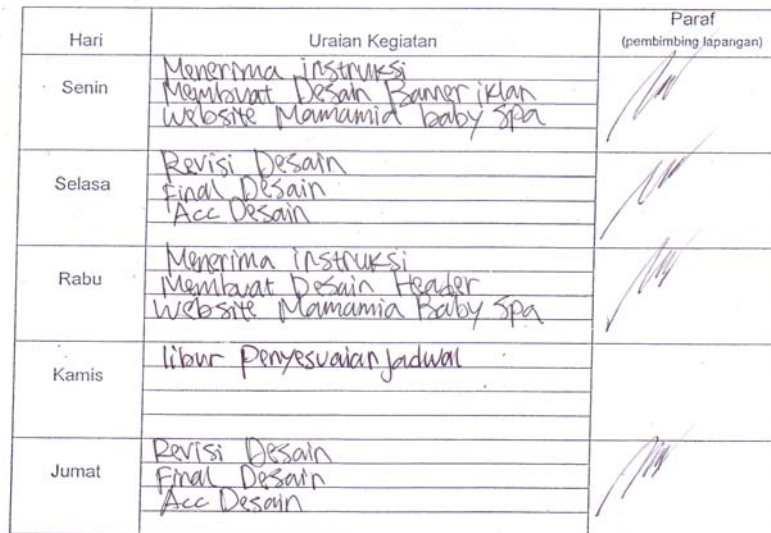 Hari Uraian Kegiatan Paraf
(pembimbing lapangan)
Senin
Menerima instruksi
Membuat Desain Banner iklan
Website Mamamia baby Spa
Selasa
Revisi Desain
Final Desain
Acc Desain
Rabu
Menerima instruksi
Membuat Desain Header
Website Mamamia Baby Spa
Kamis
libur Penyesuaian Jadwal
Jumat
Revisi Desain
Final Desain
Acc Desain